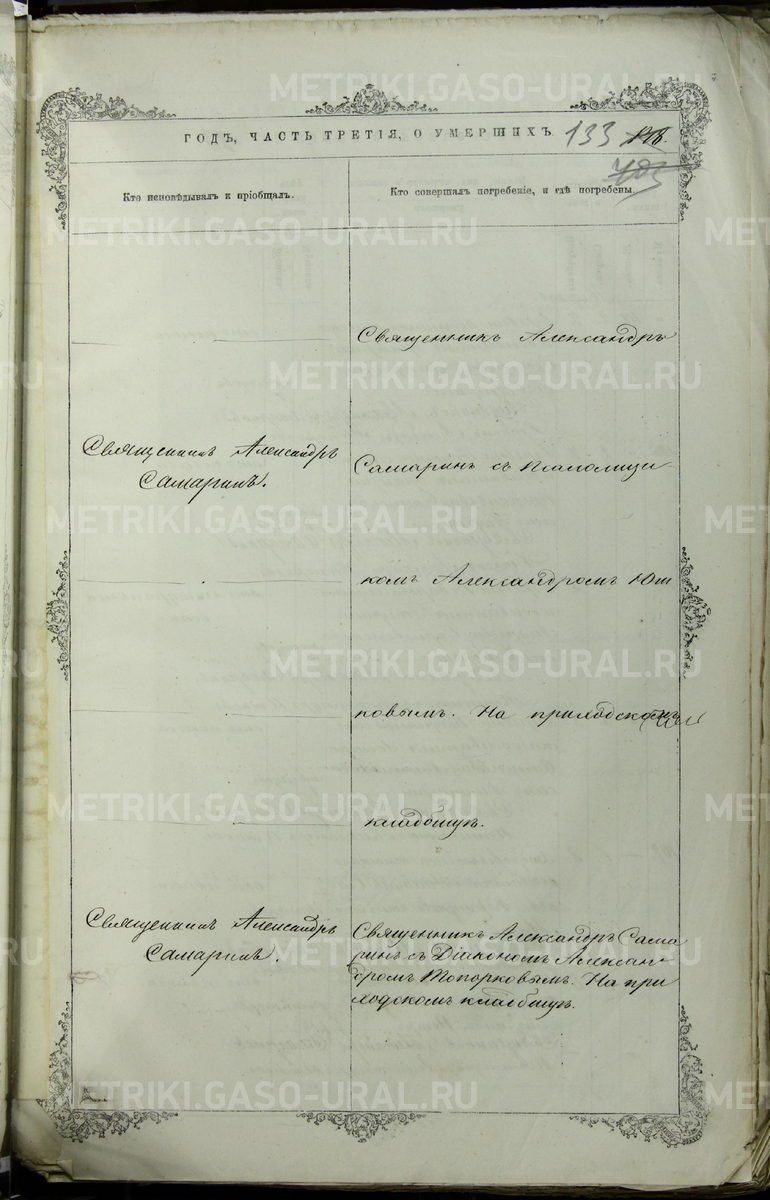 ГОДЪ, ЧАСТЬ ТРЕТІЯ, О УМЕРШИХЪ. 133
Кто исповѣдывалъ и пріобщалъ.
Кто совершалъ погребеніе, и гдѣ погребены.
Священникъ Александръ
Священникъ Александръ
Самаринъ.
Самаринъ съ Псаломщи-
комъ Александромъ Юш
ковымъ. На приходскомъ
кладбищѣ.
Священникъ Александръ
Самаринъ.
Священникъ Александръ Сама
ринъ съ Діакономъ Алексан-
дромъ Топорковымъ. На при
ходскомъ кладбищѣ.
METRIKI.GASO-URAL.RU